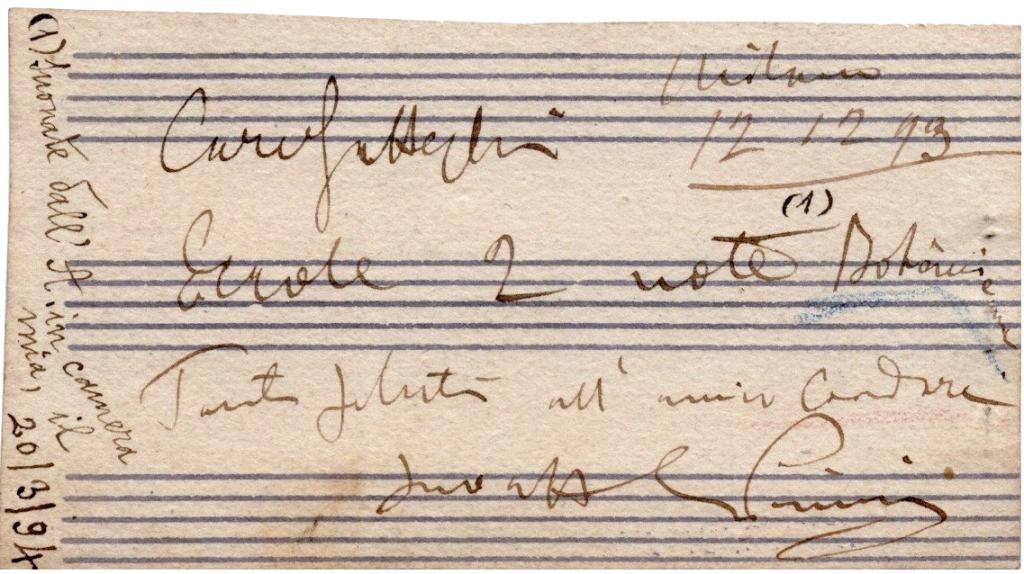 Milano
12 12 93
Caro
Eccole 2 note (1) Bohèmienne
Tanti saluti all'amico
Puccini
(1) Suonate dall'A. in camera
mia, il
20/3/94